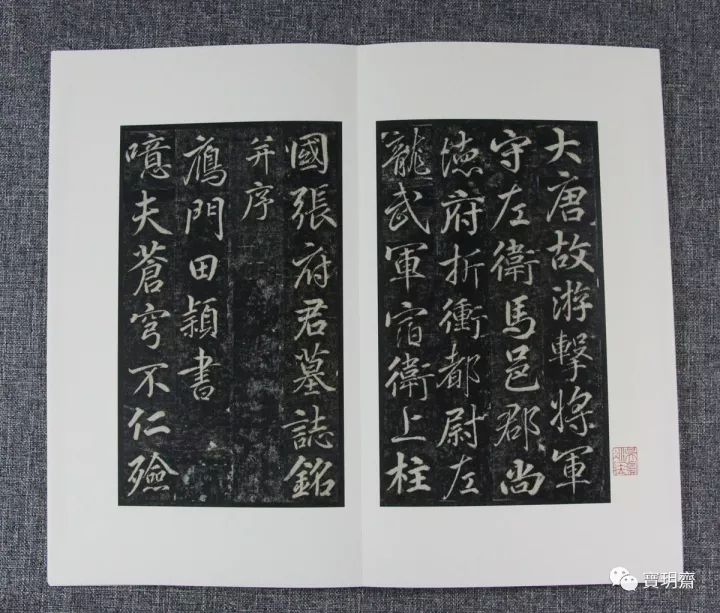 大唐故游擊將軍
守左衛馬邑郡尚
德府折衝都尉左
龍武軍宿衛上柱
國張府君墓誌銘
并序
鴈門田穎書
噫夫蒼穹不仁殮
寶玥齋